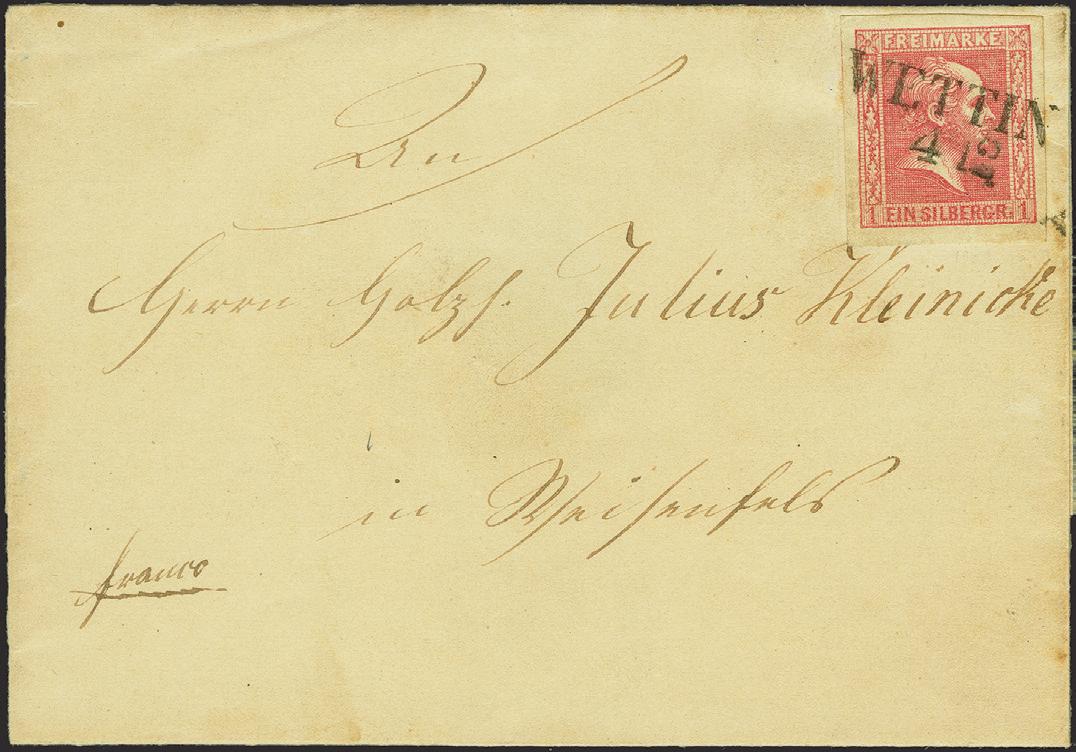 FREIMARKE
WETTIN
4 12
1 EIN SILBERGR. 1
An
Herrn Julius Kleinicke
in Weisenfels
franco